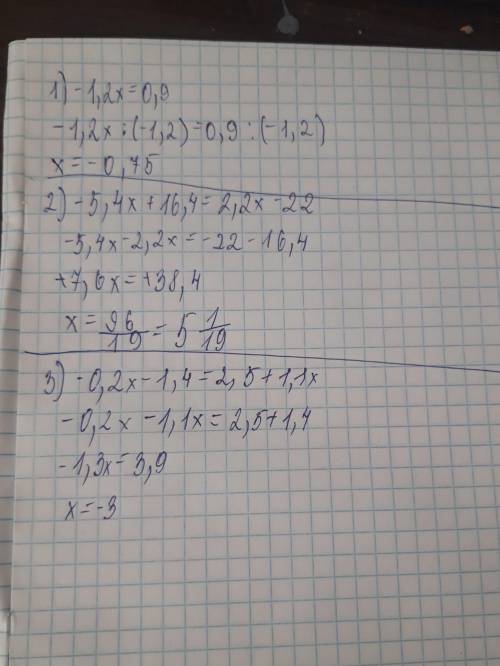 1) -1,2x=0,9
-1,2x:(-1,2)=0,9:(-1,2)
x=-0,75
2) -5,4x+16,4=2,2x-22
-5,4x-2,2x=-22-16,4
+7,6x=+38,4
x=96/19=5 1/19
3) -0,2x-1,4=2,5+1,1x
-0,2x-1,1x=2,5+1,4
-1,3x=3,9
x=-3